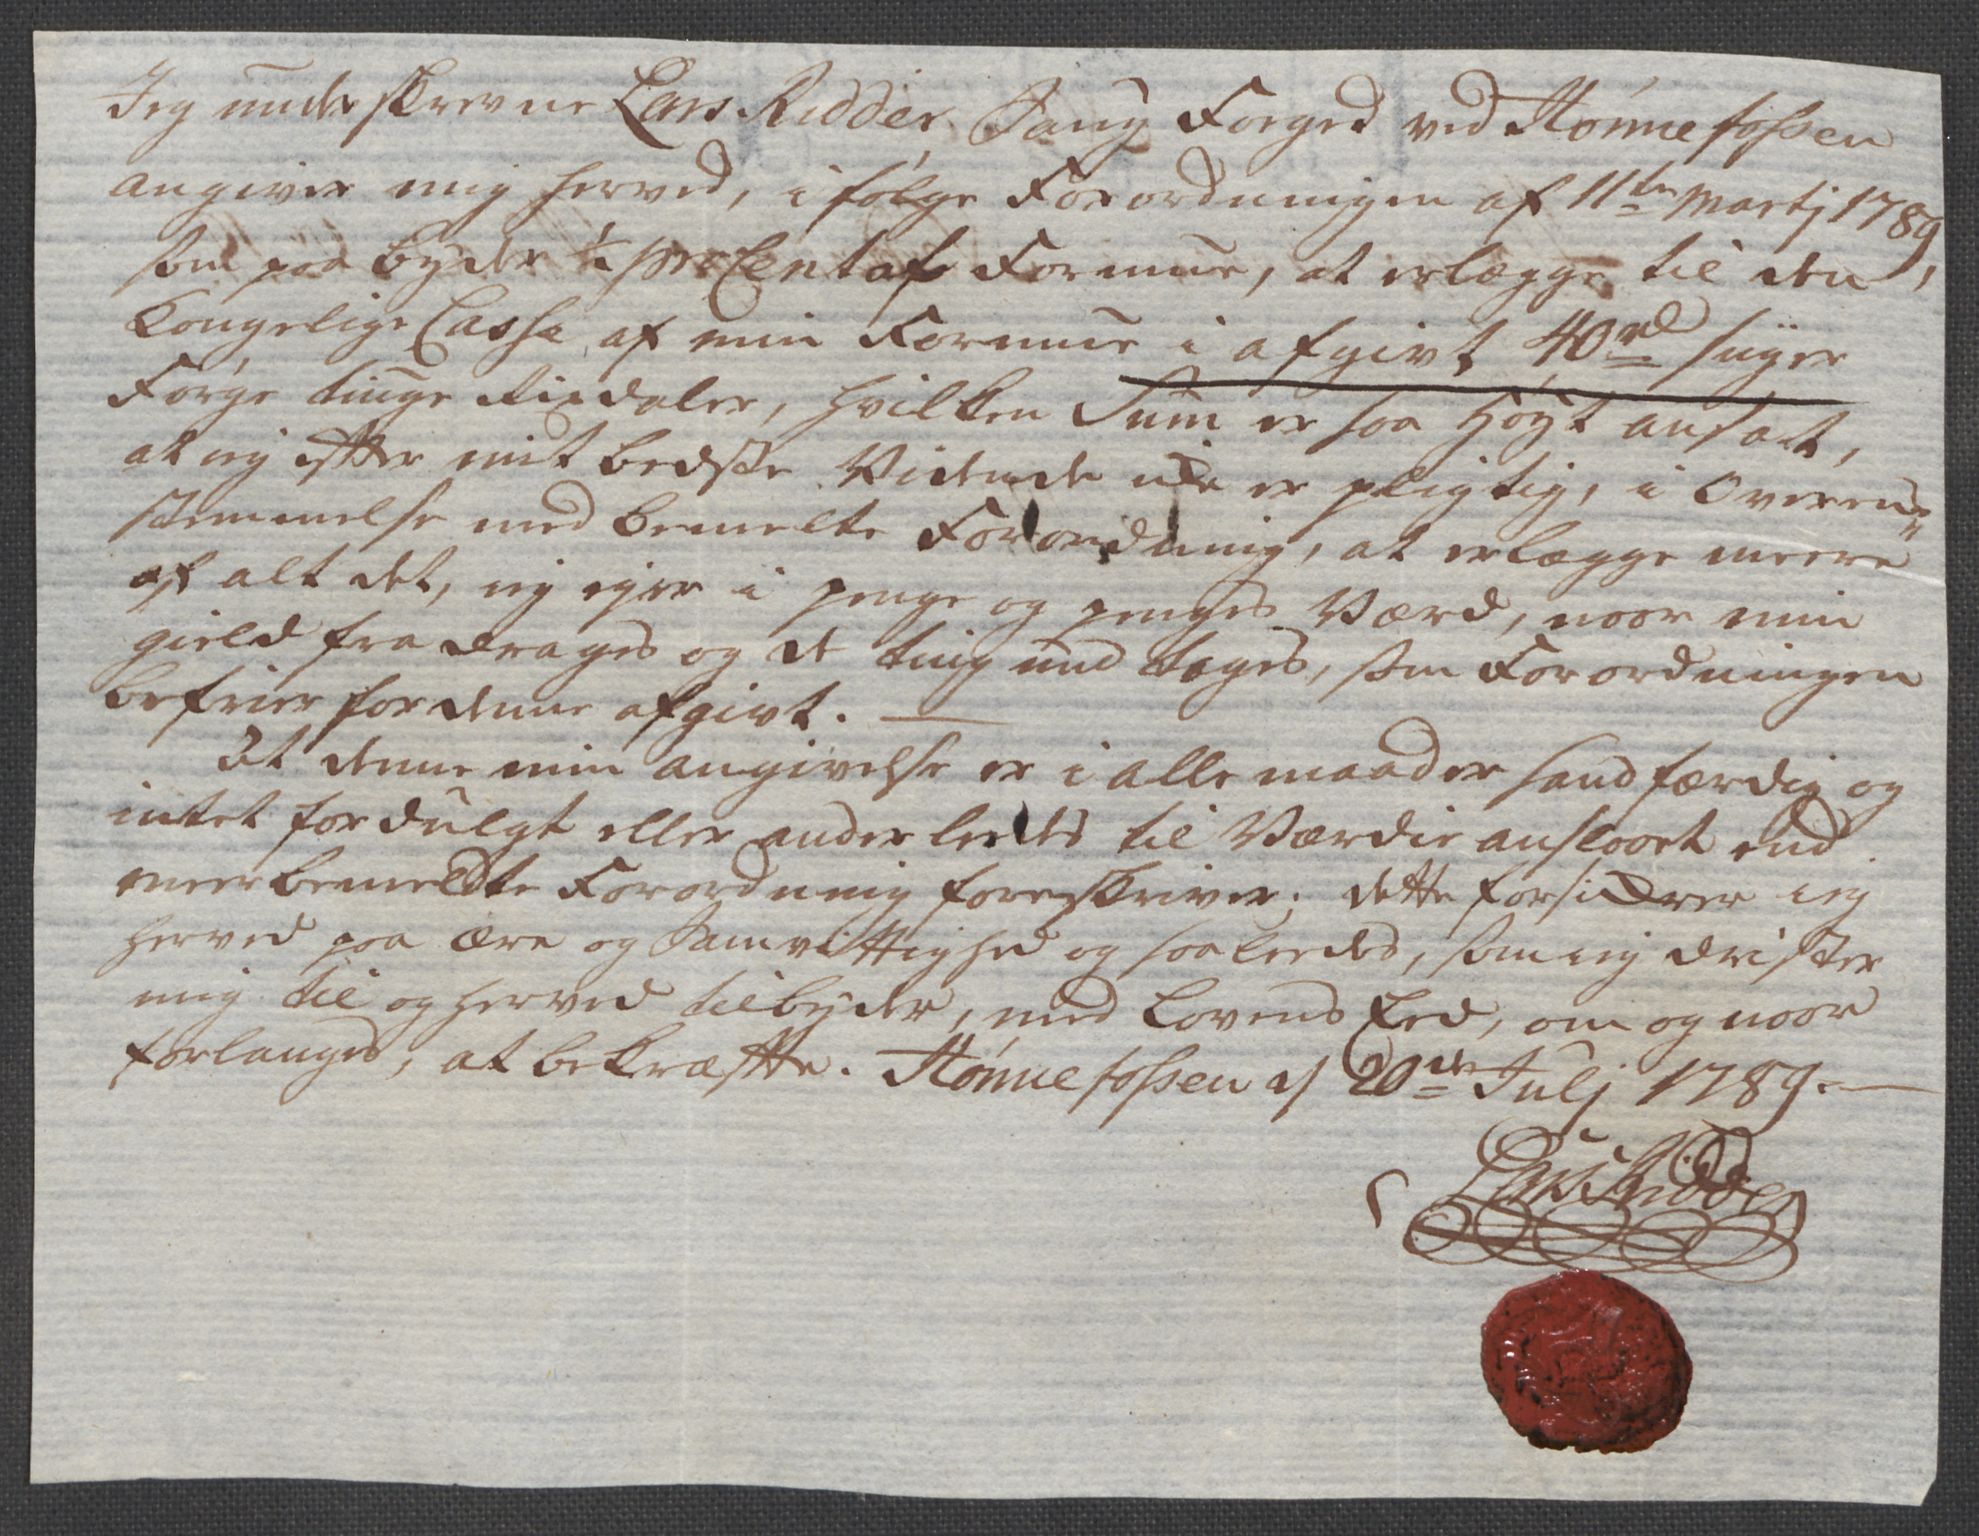 Jeg underskrevne Lars Ridder, Saug Foeged ved Hønnefossen
angiver mig herved, i følge Forordningen af 11te Martj 1789,
som paa byder ½ pro Cent af Formue, at erlægge til den
Kongelige Cassa, af min Formue i afgivt 40rd siiger
Førge tiuge Rixdaler, hvilken Sum er saa Høyt ansat,
at ieg efter mit bedste Vidende ike er pligtig, i Overens-
stemmelse med bemelte Forordning, at erlægge meere
af alt det, ieg ejer i penge og penges Værd, naar min
gield fra drages og de ting und tages, som Forordningen
befrier for denne afgivt. —
At denne min angivelse er i alle maader sandfærdig og
intet fordulgt eller anderleedes til Værdie anslaaet end
meerbemeldte Forordning foreskriver; dette forsickrer ieg
herved paa ære og Samvittighed og saaleedes, som ieg drister
mig til og herved tilbyder, med Lovens Eed, om og naar
forlanges, at bekræfte. Hønnefossen d 20de Julj 1789. —
Lars Ridder